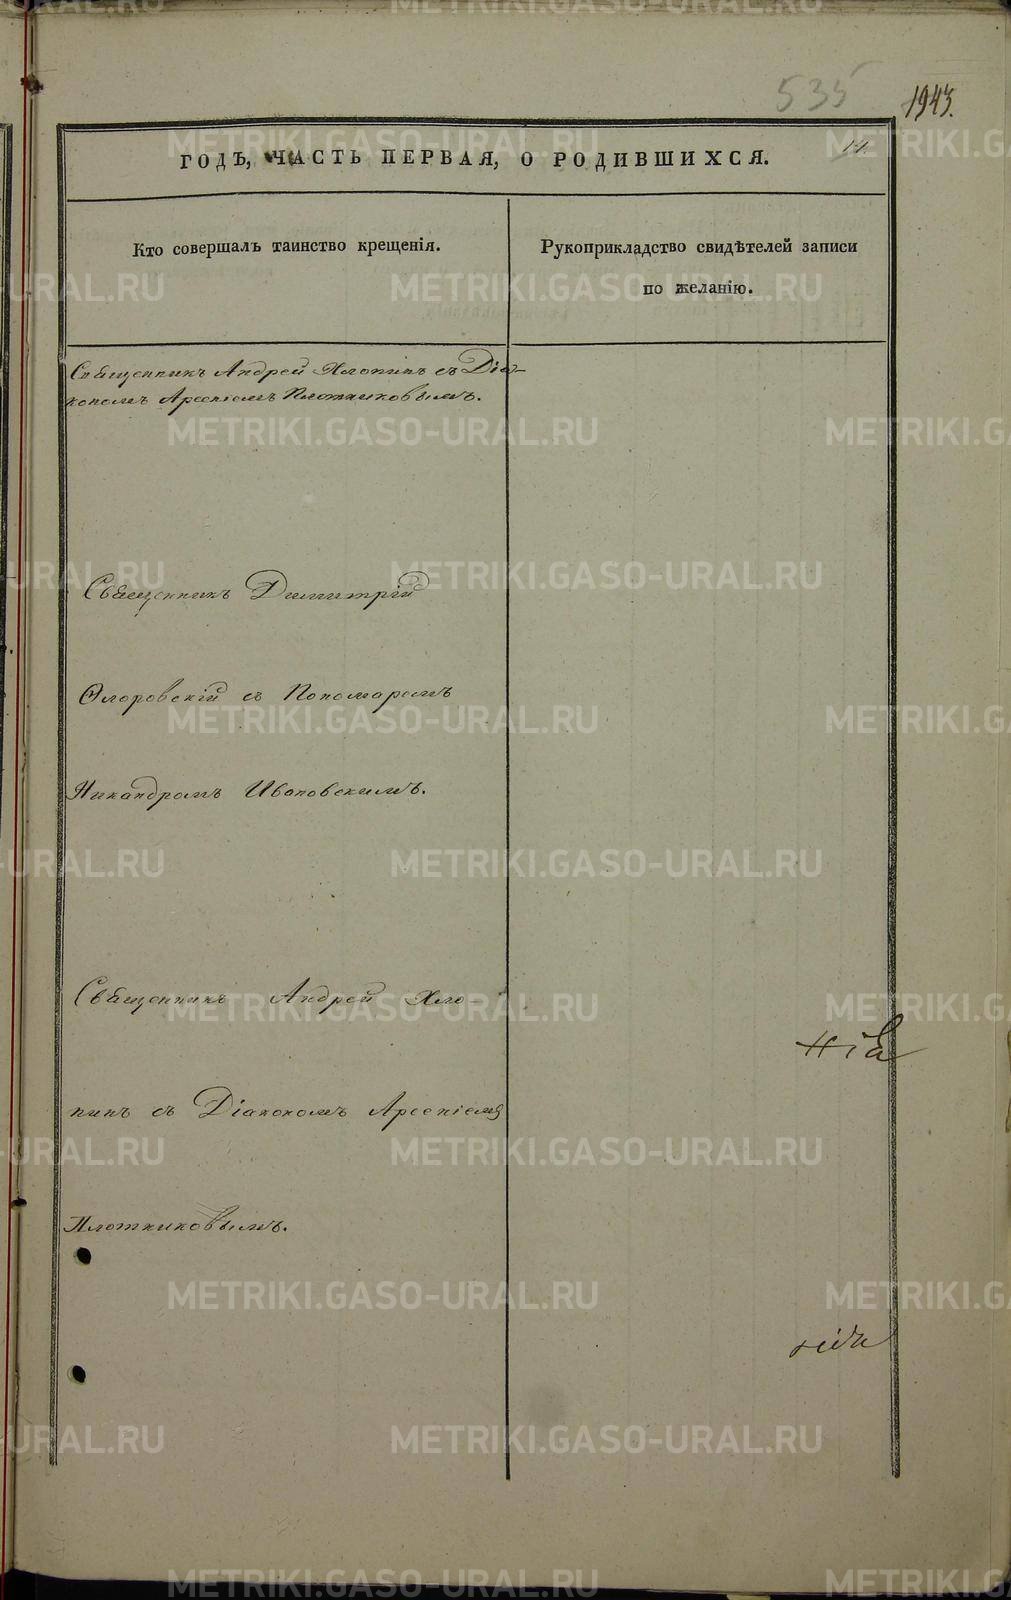 535
1943.
11.
ГОДЪ, ЧАСТЬ ПЕРВАЯ, О РОДИВШИХСЯ.
Кто совершалъ таинство крещенія.
Рукоприкладство свидѣтелей записи
по желанію.
Священникъ Андрей Хлопинъ съ Діа-
кономъ Арсеніемъ Плотниковымъ.
Священникъ Димитрій
Флоровскій съ Пономаремъ
Никандромъ Ивановскимъ.
Священникъ Андрей Хло-
пинъ съ Діакономъ Арсеніемъ
Плотниковымъ.
нія
METRIKI.GASO-URAL.RU